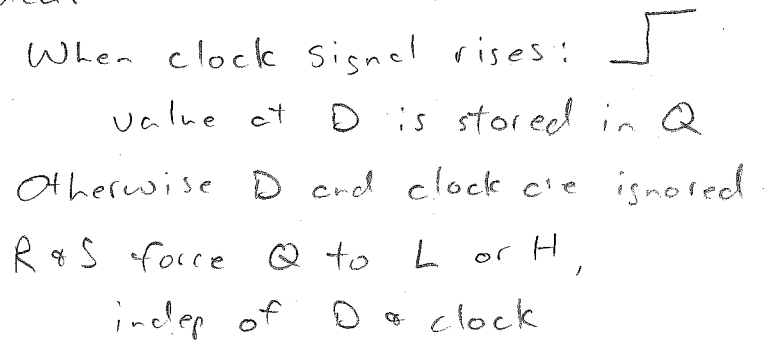 When clock signal rises:
value at D is stored in Q
Otherwise D and clock are ignored.
R & S force Q to L or H,
indep of D & clock